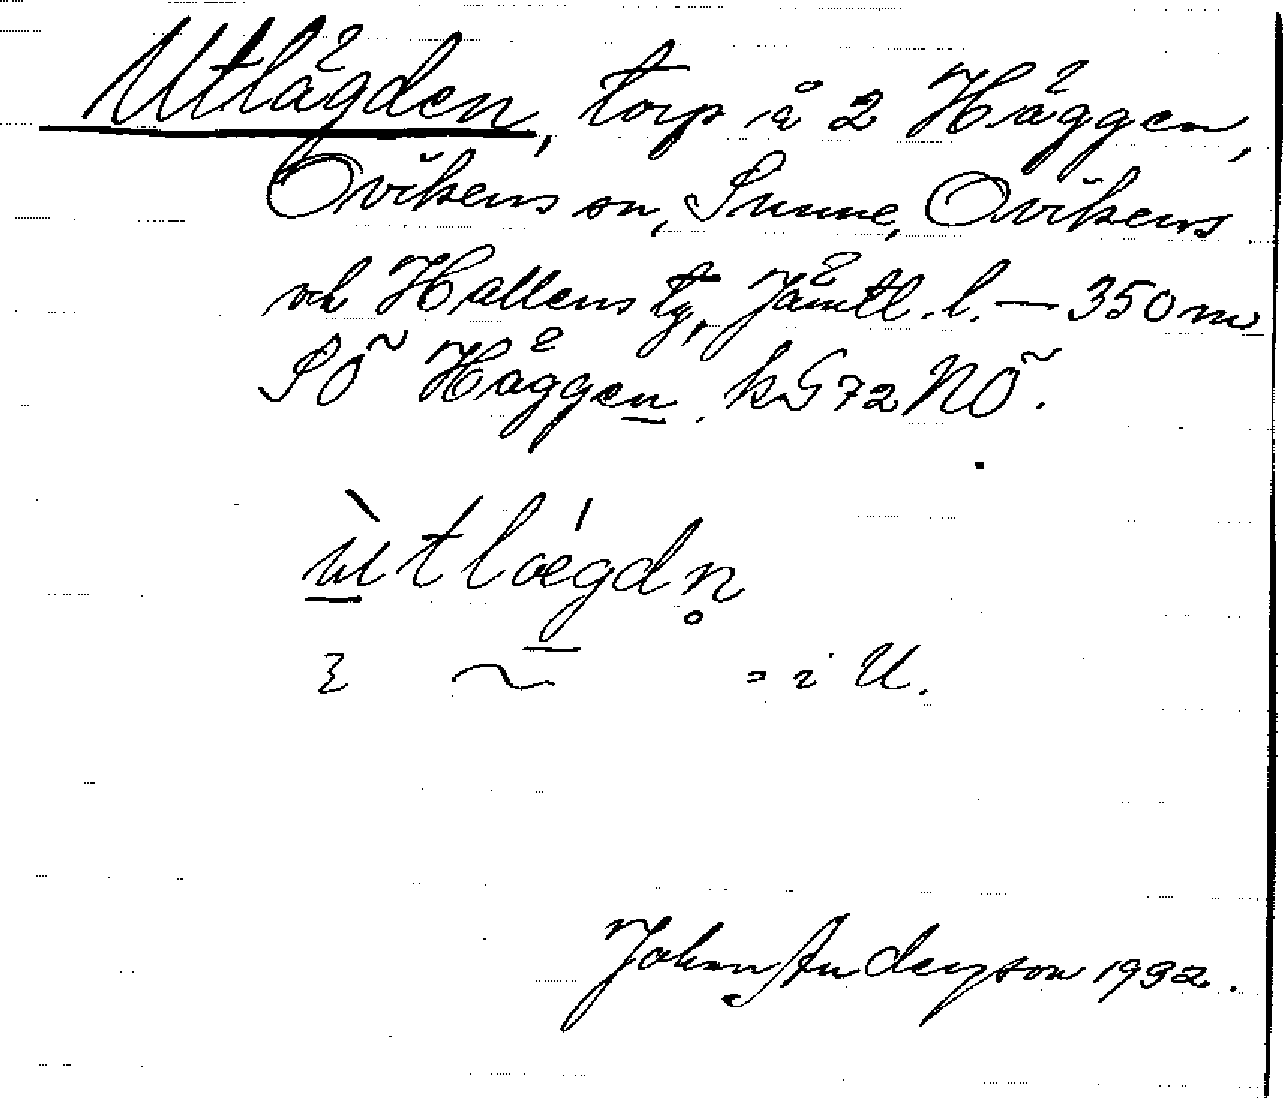 Utlägden, torp å 2 Häggen,
Ovikens sn, Sunne, Ovikens
och Hallens tg, Jämtl. l. — 350 m
SÖ Häggen. kG72NÖ.
ùtlǽgdn̥
= i U.
Johan Anderson 1932.